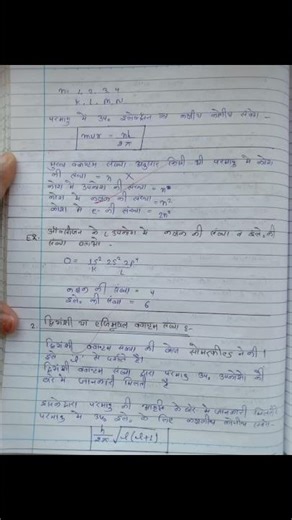 n= 1 2 3 4
K, L, M, N
परमाणु में उप. इलेक्ट्रॉन का कोणीय संवेग :-
mvr = nh/2π
मुख्य क्वाण्टम संख्या अनुसार किसी भी परमाणु में कोश
की संख्या = n
कोश में उपकोश की संख्या = n
कोश में कक्षक की संख्या = n²
कोश में e⁻ की संख्या = 2n²
Ex. ऑक्सीजन के L उपकोश में कक्षक की संख्या व इले. की
संख्या
O = 1S² 2S² 2P⁴
K L
कक्षक की संख्या = 4
इले. की संख्या = 6
2. द्विगंशी या क्वाण्टम संख्या :-
द्विगंशी क्वाण्टम संख्या की खोज सोमरफील्ड ने की।
इसे 'l' से दर्शाते है।
द्विगंशी क्वाण्टम संख्या द्वारा परमाणु उप. उपकोशों के
बारे में जानकारी मिलती है
परमाणु की आकृति के बारे में जानकारी मिलती
परमाणु में उप. इले. के लिए कोणीय संवेग
h/2π √l(l+1)